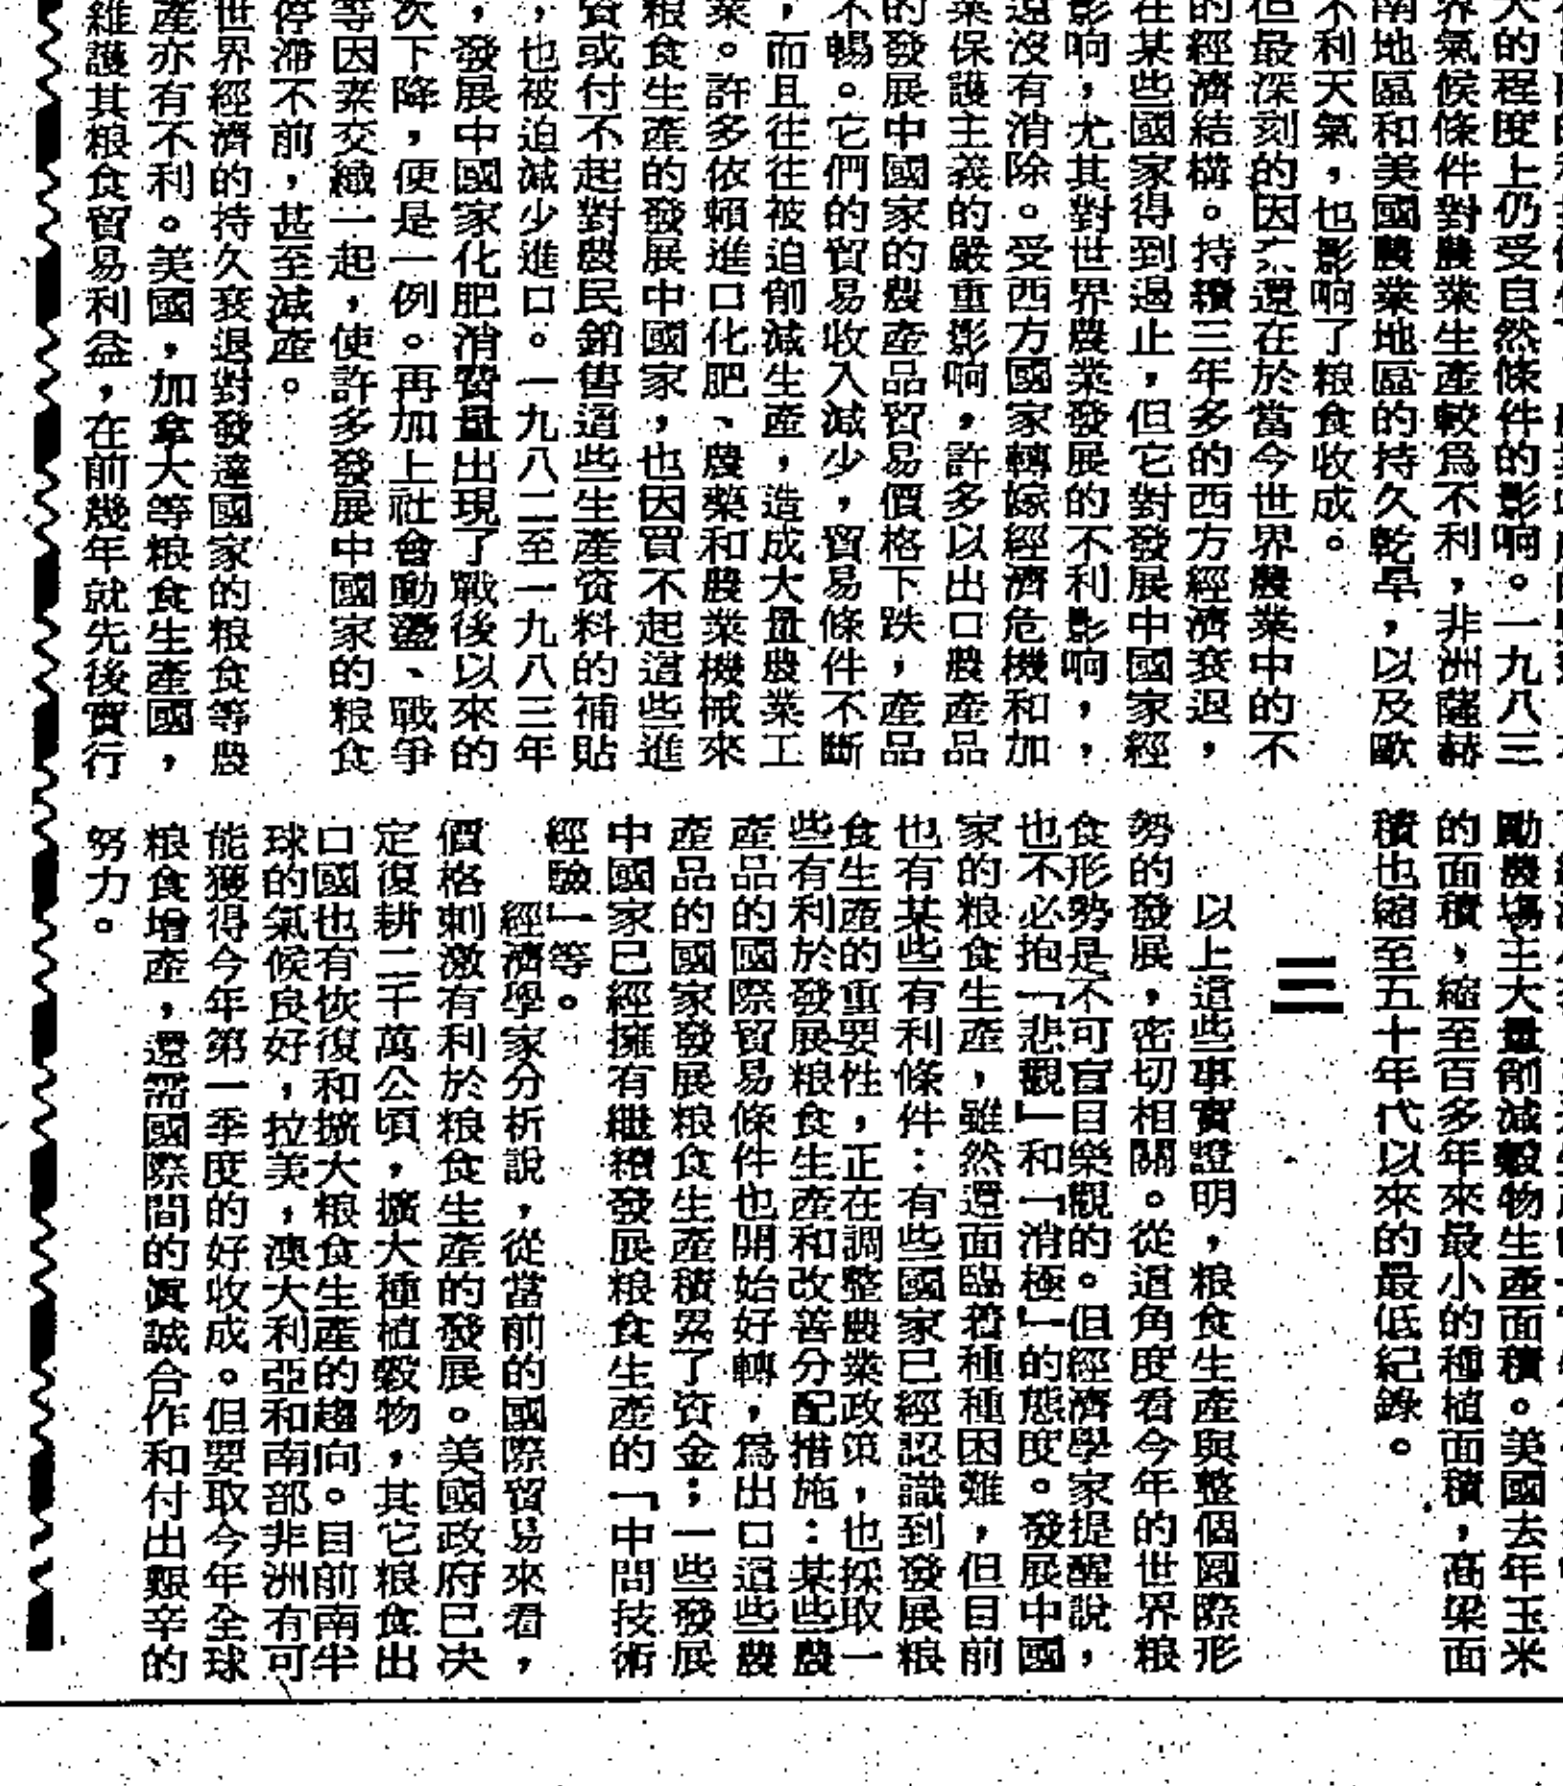 大的程度上仍受自然條件的影响。一九八三
界氣候條件對農業生產較爲不利，非洲薩赫
南地區和美國農業地區的持久乾旱，以及歐
不利天氣，也影响了粮食收成。
但最深刻的因素還在於當今世界農業中的不
的經濟結構。持續三年多的西方經濟衰退，
在某些國家得到遏止，但它對發展中國家經
影响，尤其對世界農業發展的不利影响，
還沒有消除。受西方國家轉嫁經濟危機和加
業保護主義的嚴重影响，許多以出口農產品
的發展中國家的農產品貿易價格下跌，產品
不暢。它們的貿易收入減少，貿易條件不斷
，而且往往被迫削減生產，造成大量農業工
業。許多依賴進口化肥、農藥和農業機械來
粮食生產的發展中國家，也因買不起這些進
資或付不起對農民銷售這些生產資料的補貼
，也被迫減少進口。一九八二至一九八三年
，發展中國家化肥消費量出現了戰後以來的
次下降，便是一例。再加上社會動盪、戰爭
等因素交織一起，使許多發展中國家的粮食
停滯不前，甚至減產。
世界經濟的持久衰退對發達國家的粮食等農
產亦有不利。美國，加拿大等粮食生產國，
維護其粮食貿易利益，在前幾年就先後實行
勵農場主大量削減穀物生產面積。美國去年玉米
的面積，縮至百多年來最小的種植面積，高粱面
積也縮至五十年代以來的最低紀錄。
三
以上這些事實證明，粮食生產與整個國際形
勢的發展，密切相關。從這角度看今年的世界粮
食形勢是不可盲目樂觀的。但經濟學家提醒說，
也不必抱「悲觀」和「消極」的態度。發展中國
家的粮食生產，雖然還面臨着種種困難，但目前
也有某些有利條件：有些國家已經認識到發展粮
食生產的重要性，正在調整農業政策，也採取一
些有利於發展粮食生產和改善分配措施：某些農
產品的國際貿易條件也開始好轉，爲出口這些農
產品的國家發展粮食生產積累了資金；一些發展
中國家已經擁有繼續發展粮食生產的「中間技術
經驗」等。
經濟學家分析說，從當前的國際貿易來看，
價格刺激有利於粮食生產的發展。美國政府已决
定復耕二千萬公頃，擴大種植穀物，其它粮食出
口國也有恢復和擴大粮食生產的趨向。目前南半
球的氣候良好，拉美，澳大利亞和南部非洲有可
能獲得今年第一季度的好收成。但要取今年全球
粮食增產，還需國際間的眞誠合作和付出艱辛的
努力。